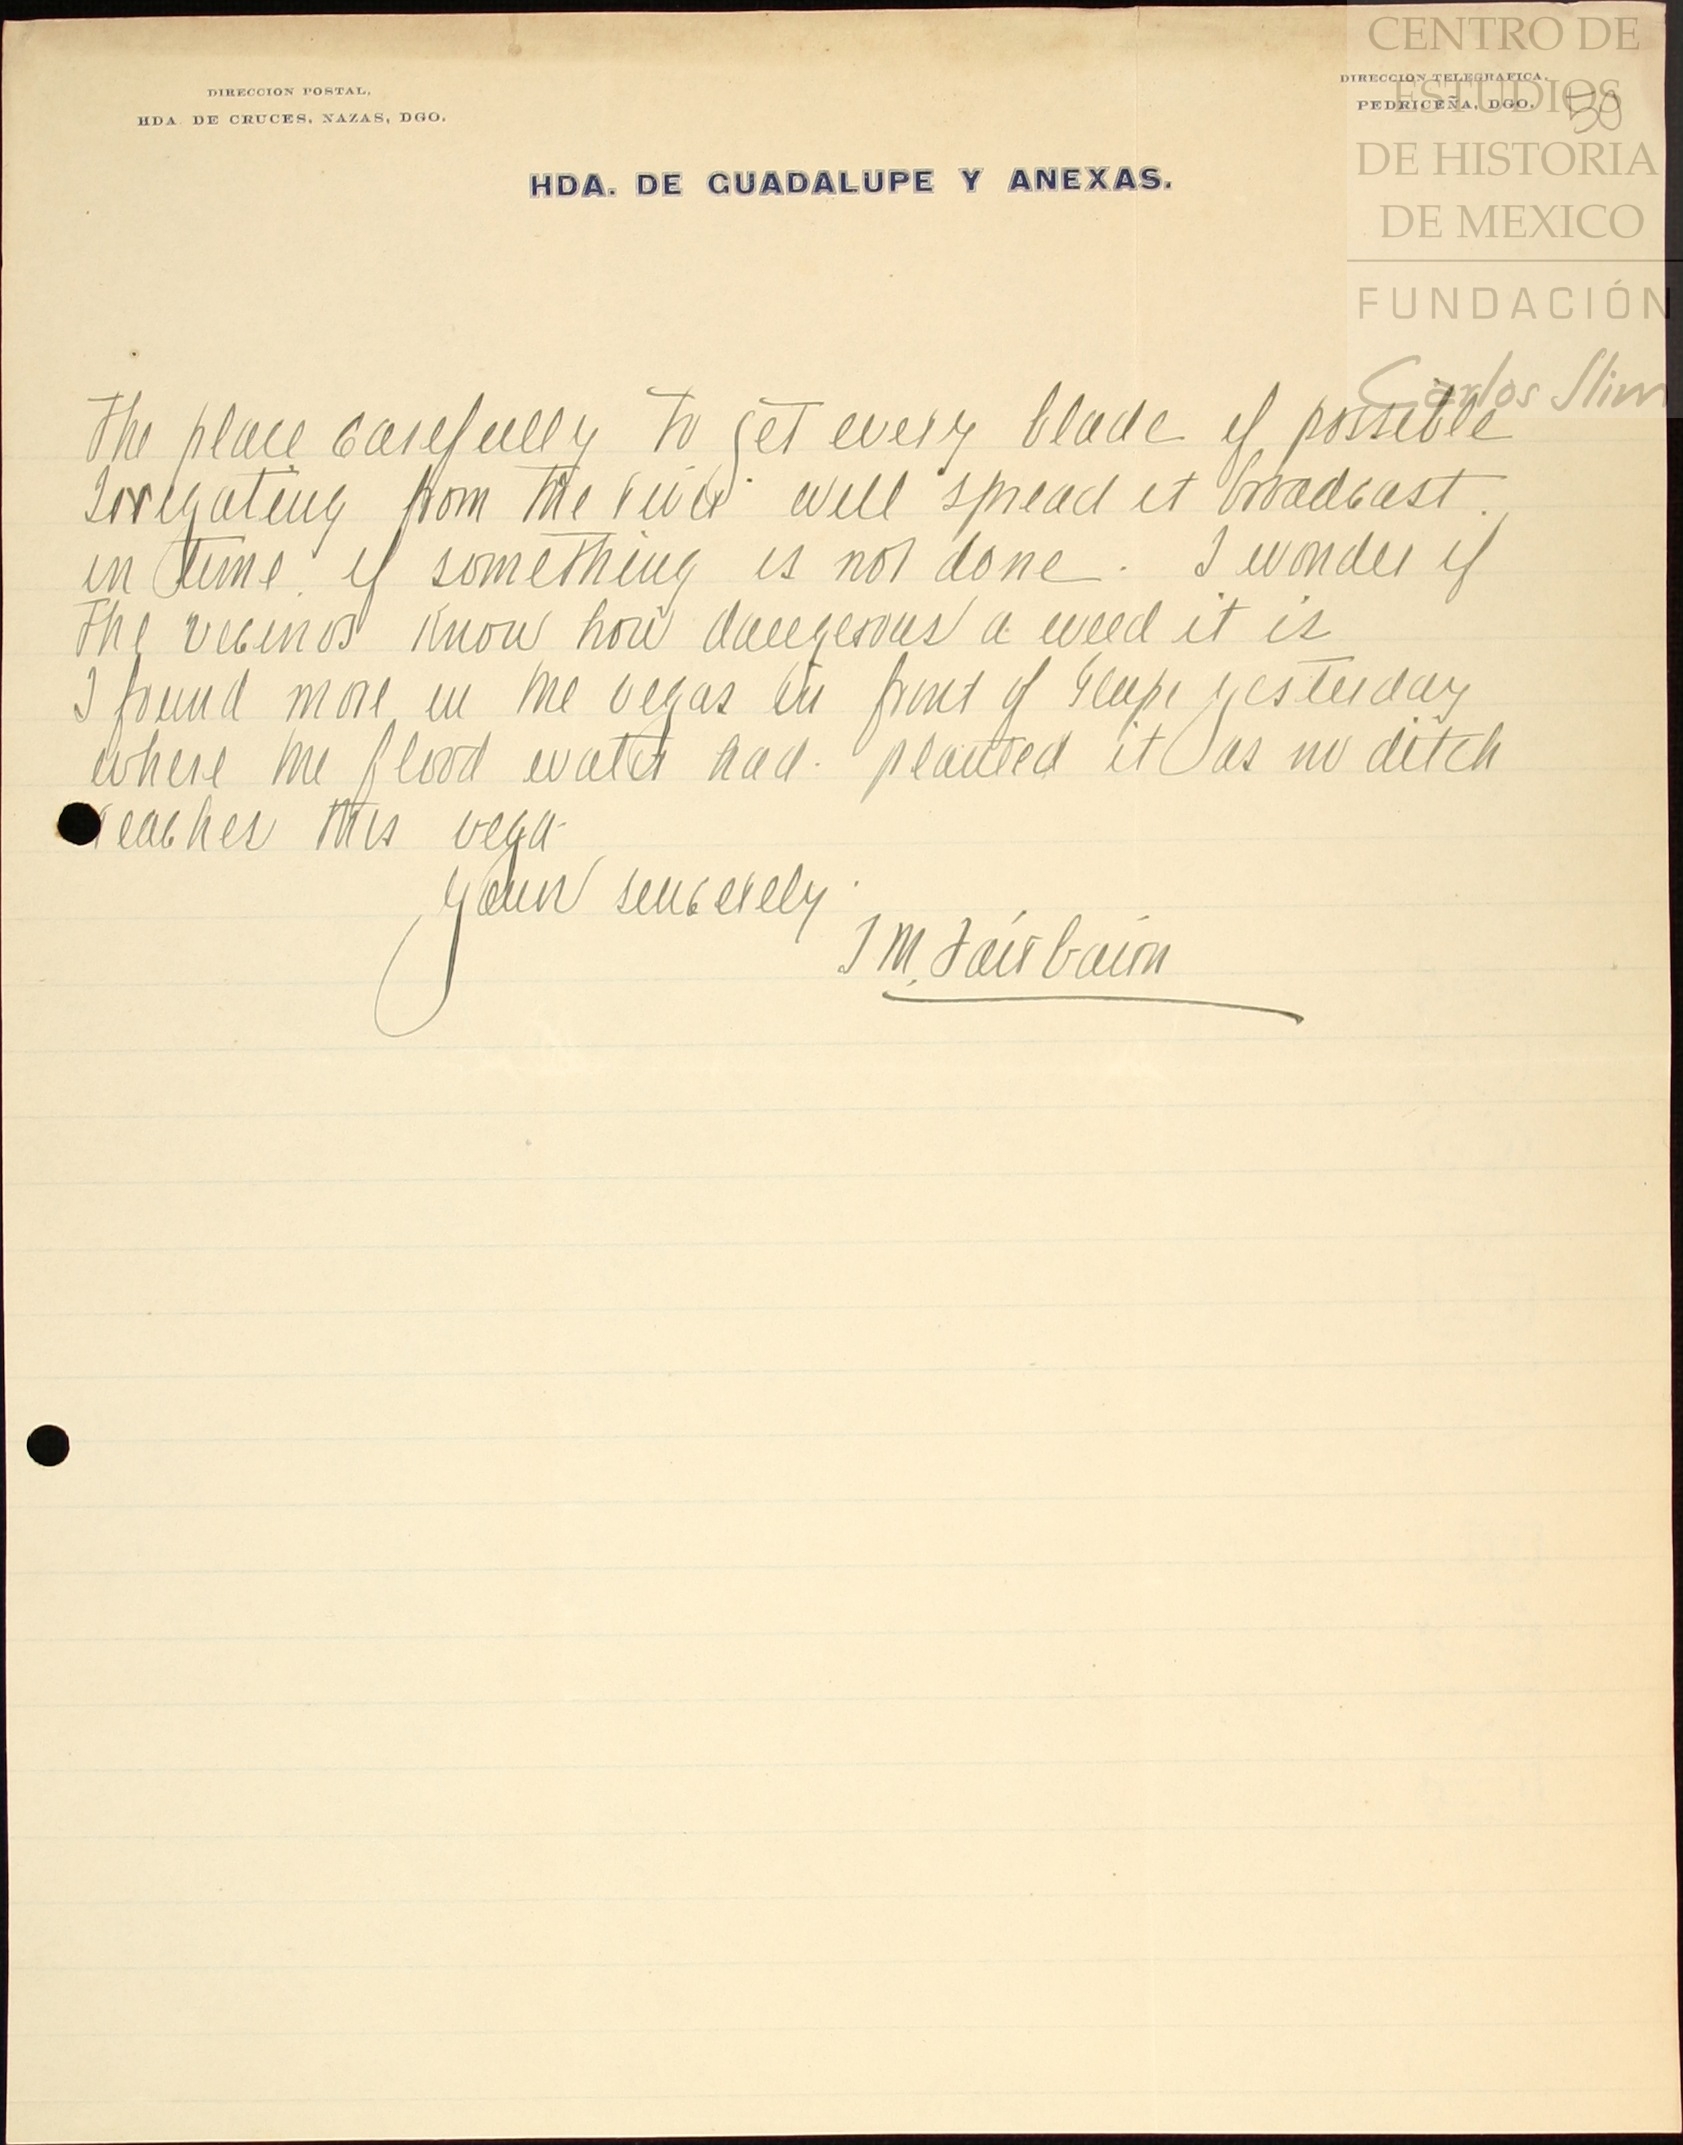 DIRECCION POSTAL,
HDA. DE CRUCES, NAZAS, DGO.
DIRECCION TELEGRAFICA,
PEDRICEÑA, DGO.
50
HDA. DE GUADALUPE Y ANEXAS.
CENTRO DE
ESTUDIOS
DE HISTORIA
DE MEXICO
FUNDACIÓN
Carlos Slim
The place carefully to get every blade if possible
Irrigating from the river will spread it broadcast.
in time if something is not done. I wonder if
the vecinos know how dangerous a weed it is
I found more in the vegas in front of Gupe yesterday
where the flood water had planted it as no ditch
reaches this vega
yours sincerely.
J M. Fairbairn